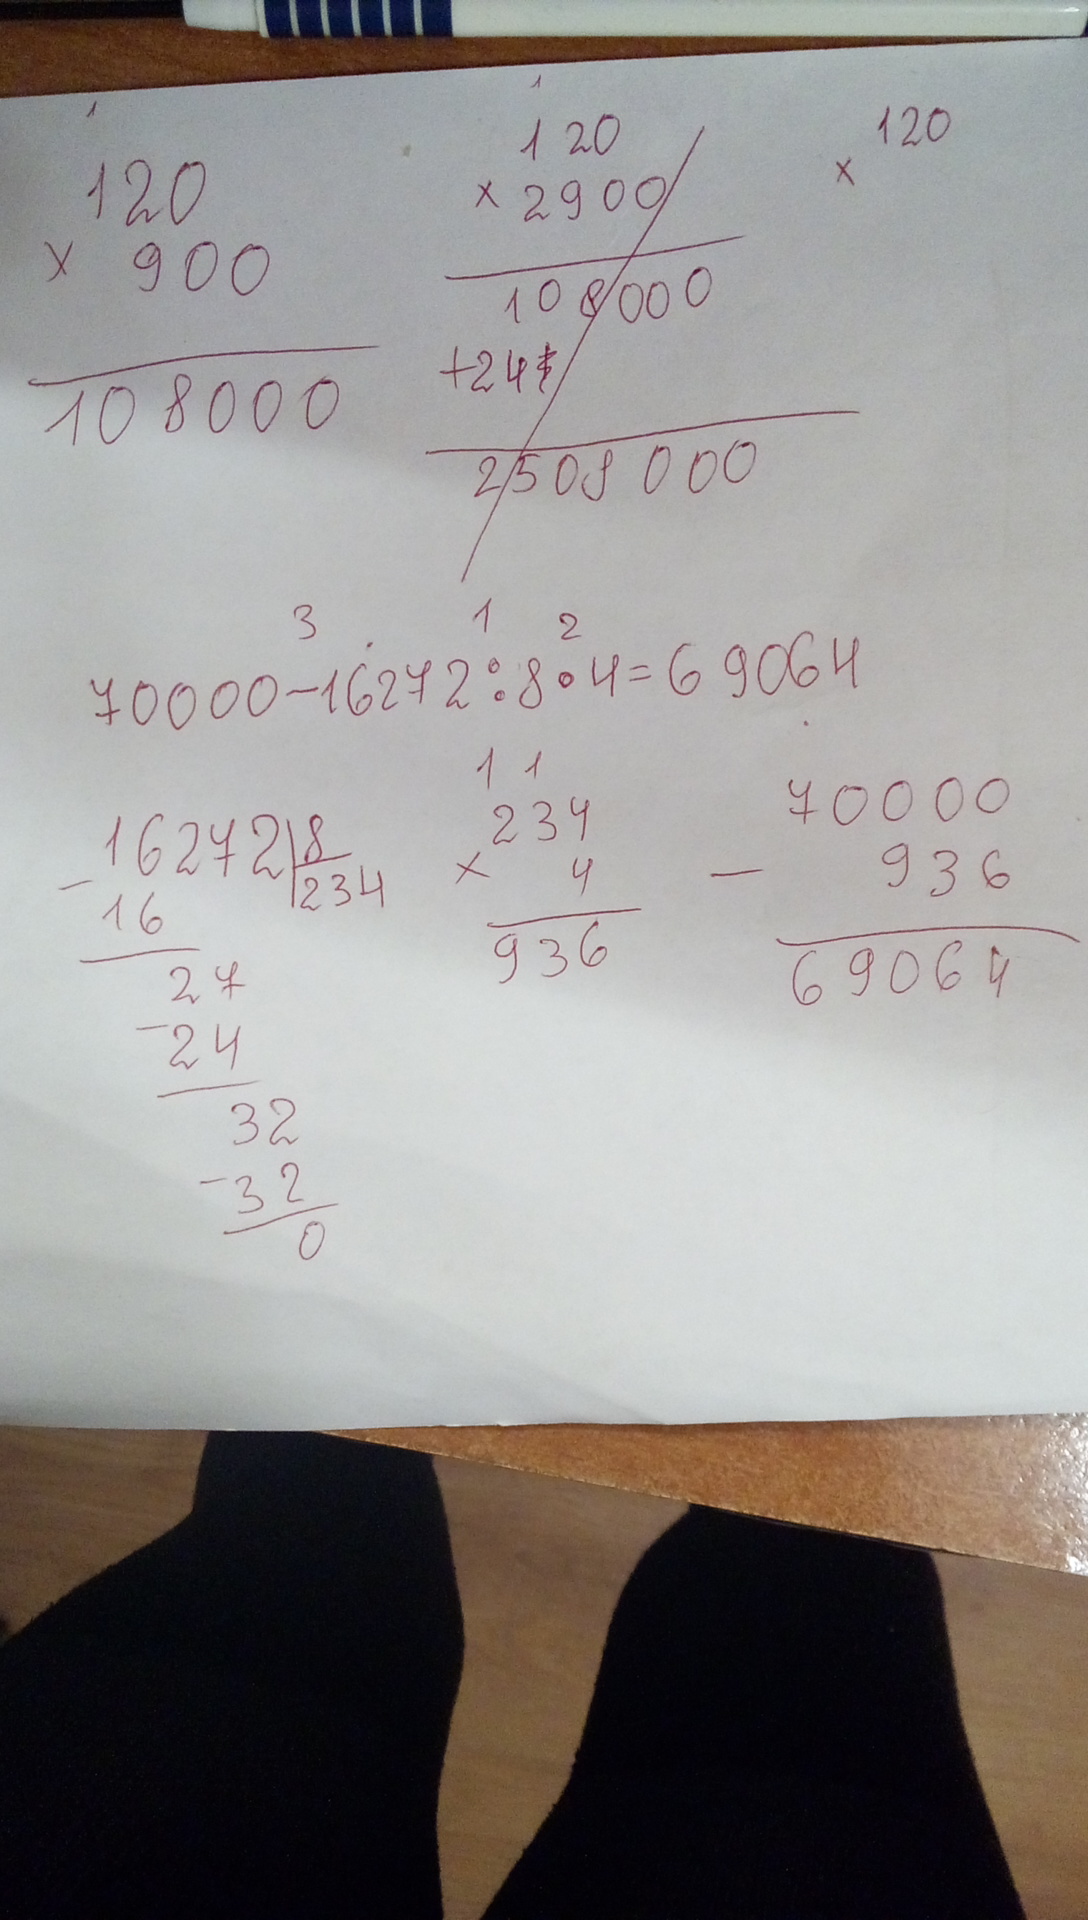 1
120
× 900
108000
1
120
× 2900
108000
+24
2508000
120
×
3 1 2
70000-16272:8·4=69064
16272|8
- 16 234
27
- 24
32
- 32
0
1 1
234
× 4
936
70000
- 936
69064